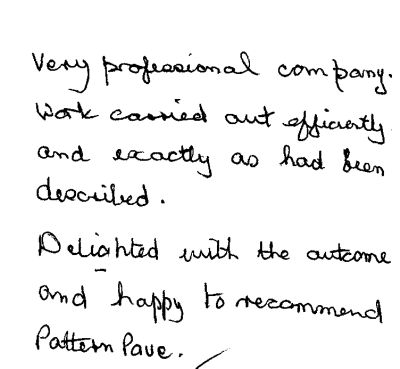 Very professional company.
Work carried out efficiently
and exactly as had been
described.
Delighted with the outcome
and happy to recommend
Pattern Pave.